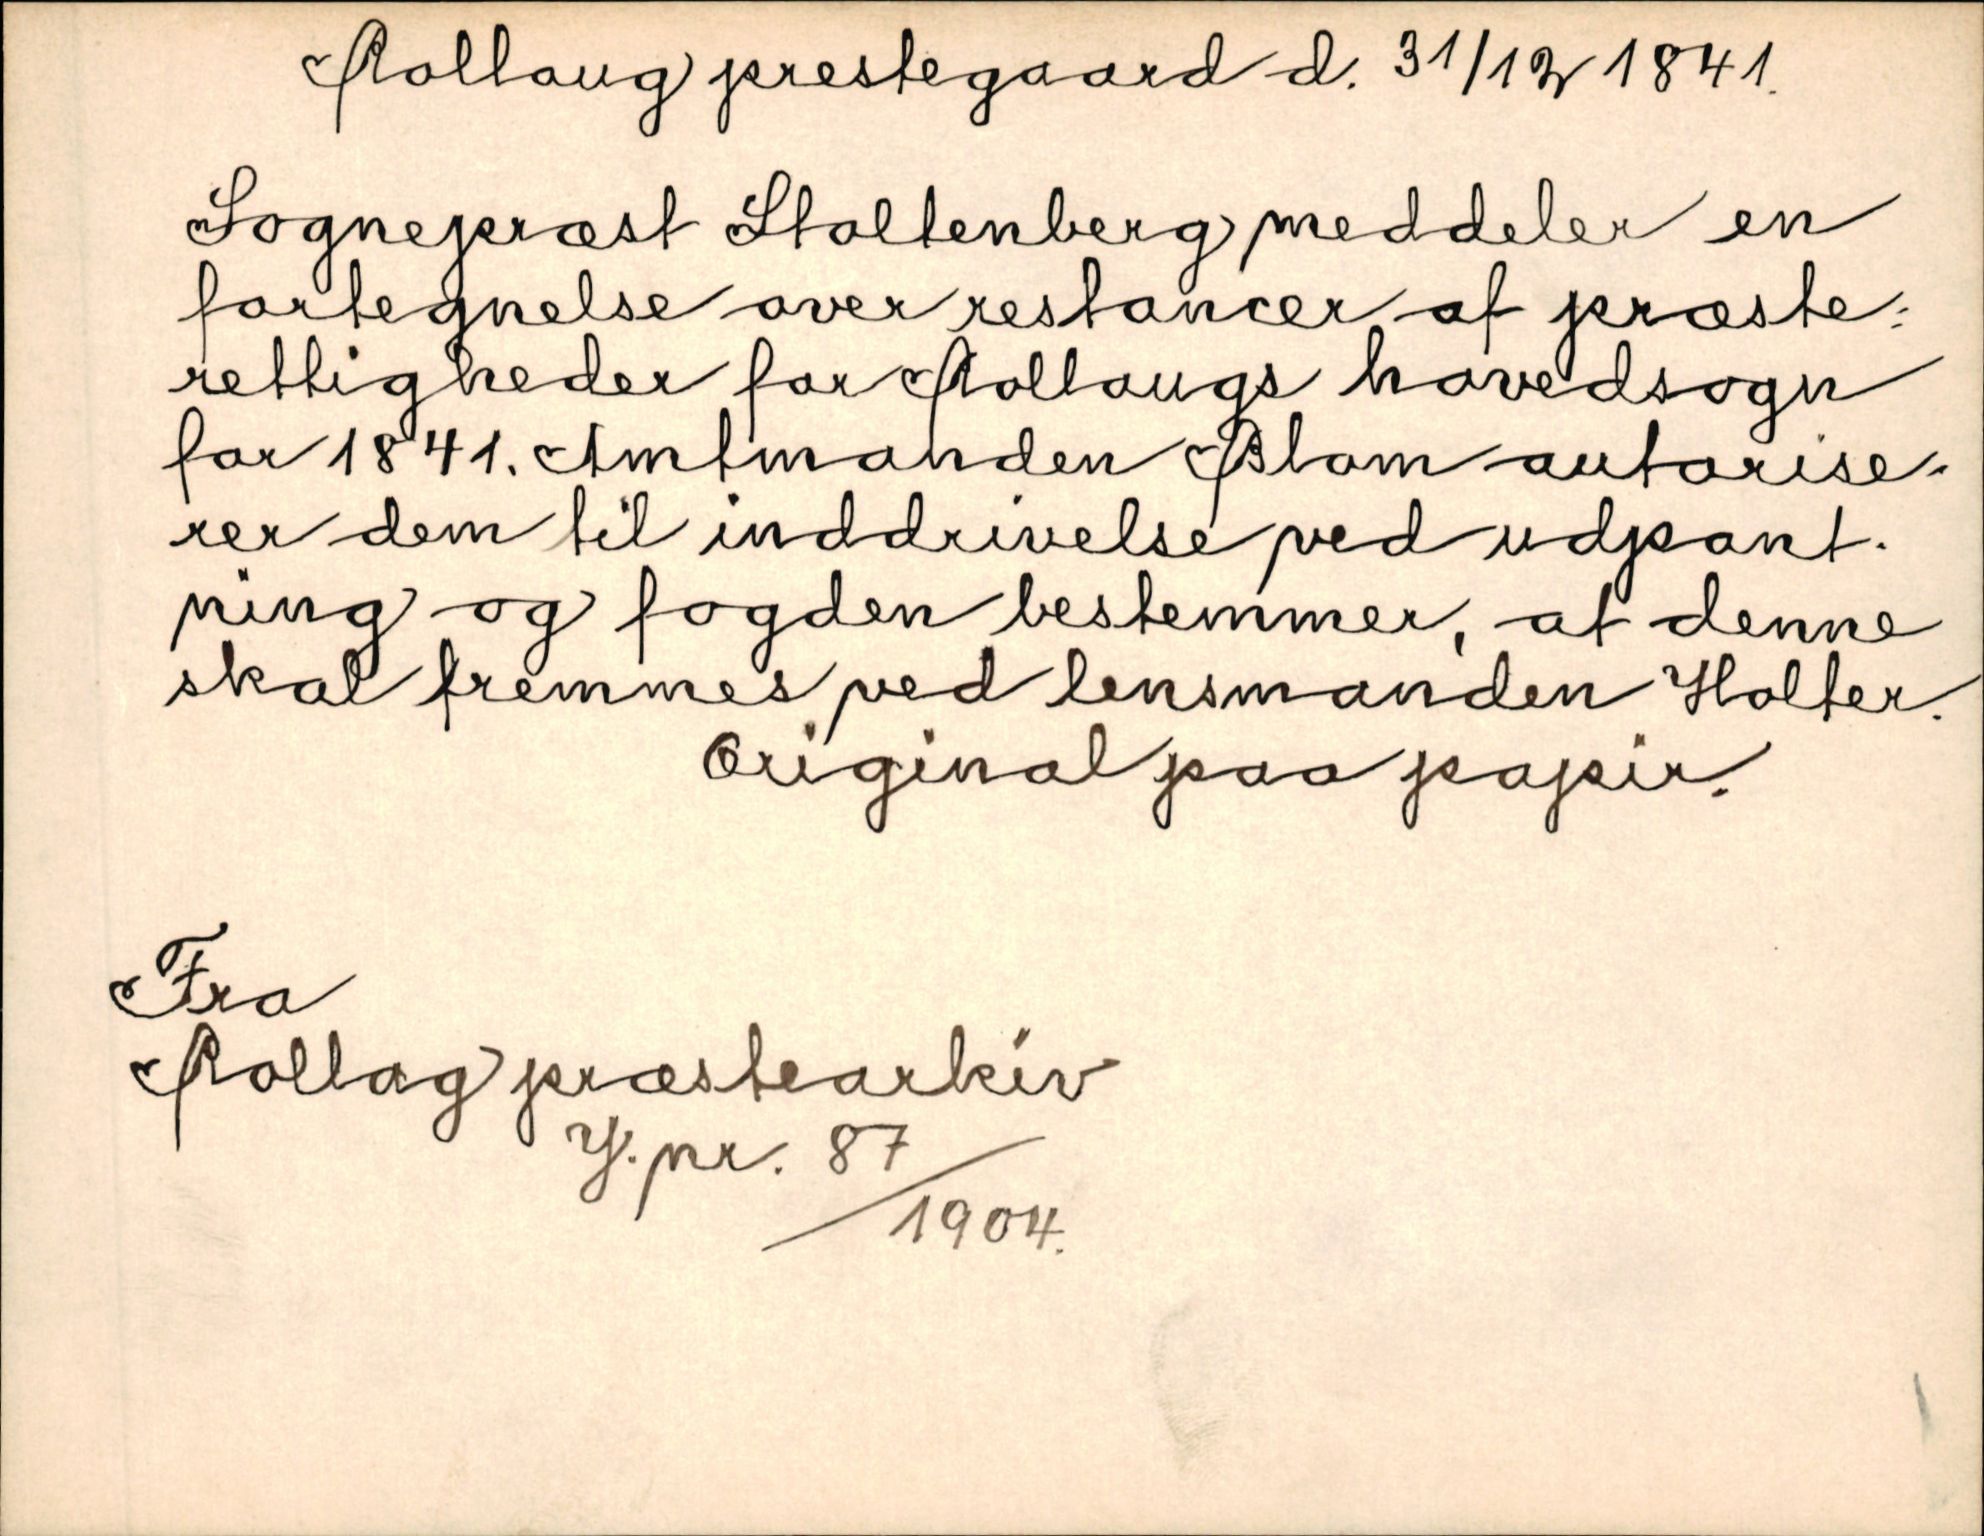 Rollaug prestegaard d. 31/12 1841.
Sognepræst Stoltenberg meddeler en
fortegnelse over restancer af præste-
rettigheder for Rollaugs hovedsogn
for 1841. Amtmanden Blom autorise-
rer dem til inddrivelse ved udpant-
ning og fogden bestemmer, at denne
skal fremmes ved lensmanden Holter.
Original paa papir.
Fra
Rollag præstearkiv
J. nr. 87/1904.